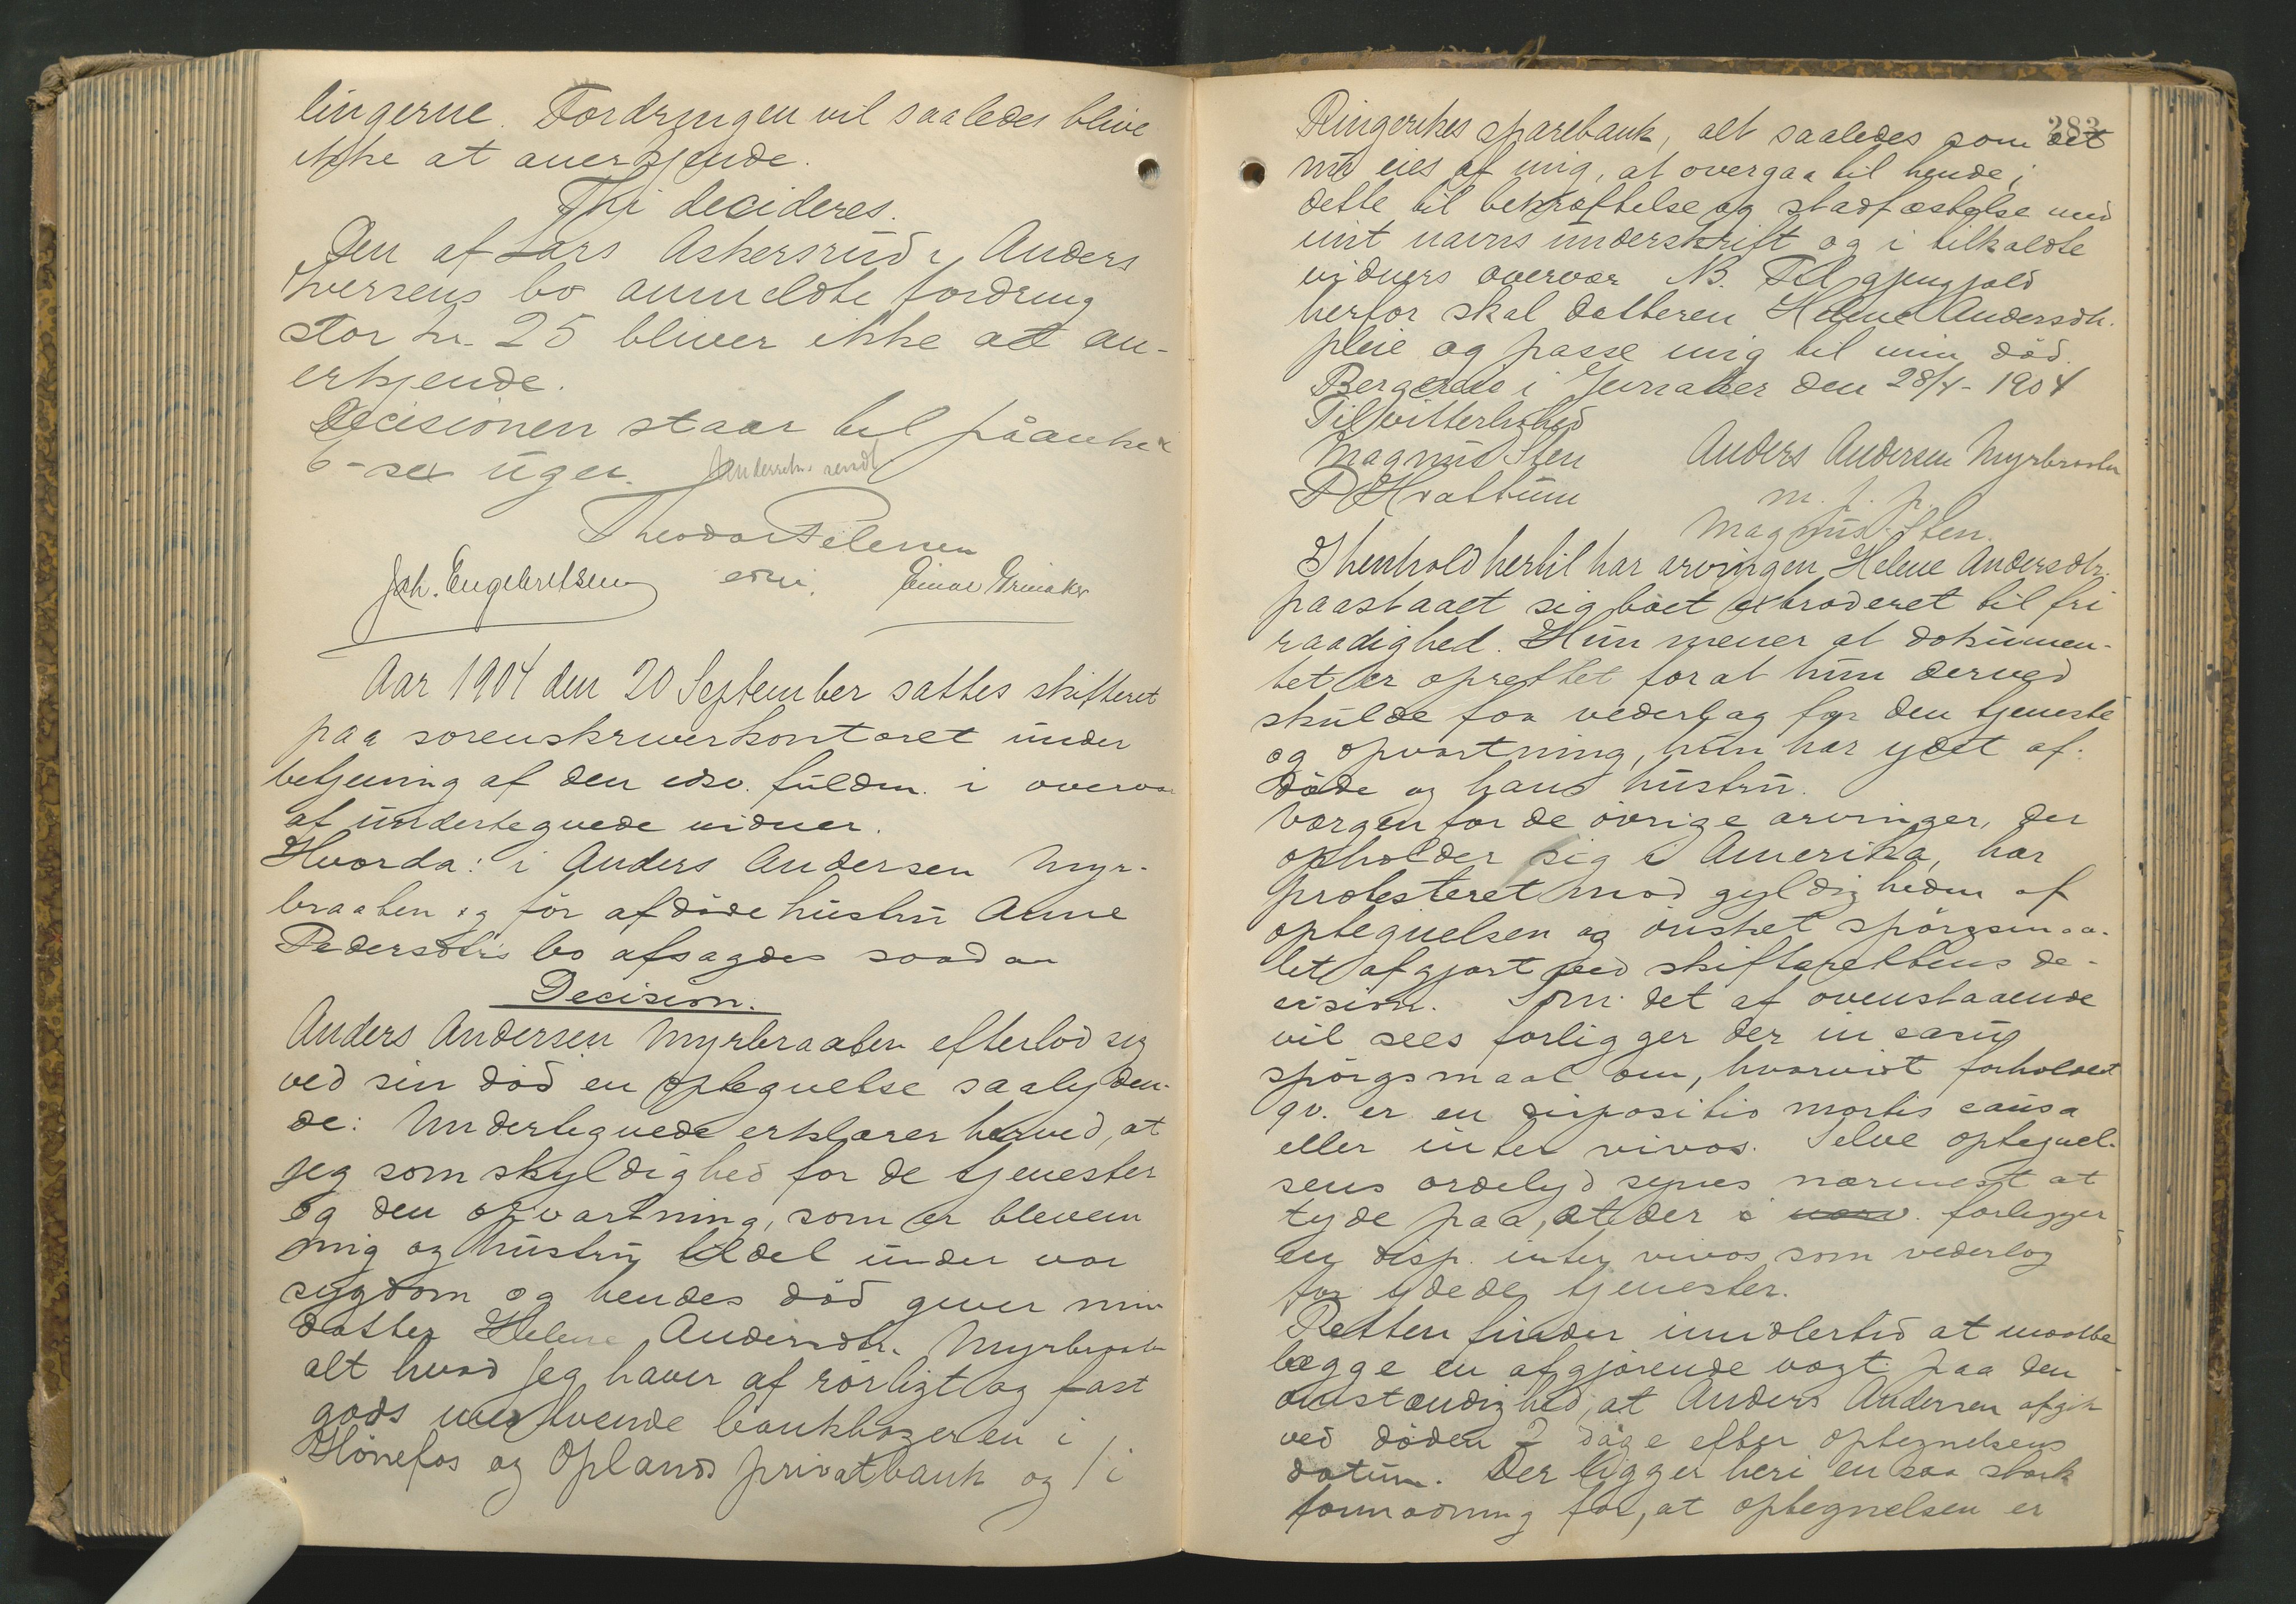 lingerne. Fordringen vil saaledes blive
ikke at anerkjende.
Thi decideres.
Den af Lars Askersrud i Anders
Iversens bo anmeldte fordring
stor kr. 25 bliver ikke at an-
erkjende.
Decisionen staar til påanke i
6 - sex uger.
Theodor Petersen
Joh. Engebretsen edsv. Einar
Aar 1904 den 20 September sattes skifteret
paa sorenskriverkontoret under
betjening af den edsv. fuldm. i overvær
af undertegnede vidner.
Hvorda: i Anders Andersen Myr-
braaten og før afdøde hustru Anne
Pedersdtrs bo afsagdes saadan
Decision.
Anders Andersen Myrbraaten efterlod sig
ved sin død en optegnelse saalyden-
de: Undertegnede erklærer herved, at
jeg som skyldighed for de tjenester
og den opvartning, som er bleven
mig og hustru tildel under vor
sygdom og hendes død giver min
datter Helene Andersdtr. Myrbraaten
alt hvad jeg haver af rørligt og fast
gods iberegnende bankbøgerne i
Hønefos og Oplands privatbank og i
283
Ringerikes sparebank, alt saaledes som det
nu eies af mig, at overgaa til hende;
dette til bekræftelse og stadfæstelse med
mit navns underskrift og i tilkaldte
vidners overvær NB. Til gjengjæld
herfor skal datteren Helene Andersdtr.
pleie og passe mig til min død.
i Jevnaker den 28/4 - 1904
Til vitterlighed
Magnus Sten Anders Andersen Myrbraaten
P Hvattum m. f. p.
Magnus Sten.
I henhold hertil har arvingen Helene Andersdtr.
paastaaet sig boet extraderet til fri
raadighed. Hun mener at dokumen-
tet er oprettet forat hun derved
skulde faa vederlag for den tjeneste
og opvartning, hun har ydet af-
døde og hans hustru.
Værgen for de øvrige arvinger, der
opholder sig i Amerika, har
protesteret mod gyldigheden af
optegnelsen og ønsket spørgsmaa-
let afgjort ved skifterettens de-
cision. Som det af ovenstaaende
vil sees foreligger der in casu
spørgsmaal om, hvorvidt forholdet
qv. er en dispositio mortis causa
eller inter vivos. Selve optegnel-
sens ordelyd synes nærmest at
tyde paa, at der i forligger
en disp. inter vivos som vederlag
for ydede tjenester.
Retten finder imidlertid at maatte
lægge en afgjørende vægt paa den
omstændighed, at Anders Andersen afgik
ved døden 2 dage efter optegnelsens
datum. Der ligger heri en saa stærk
formodning for, at optegnelsen er